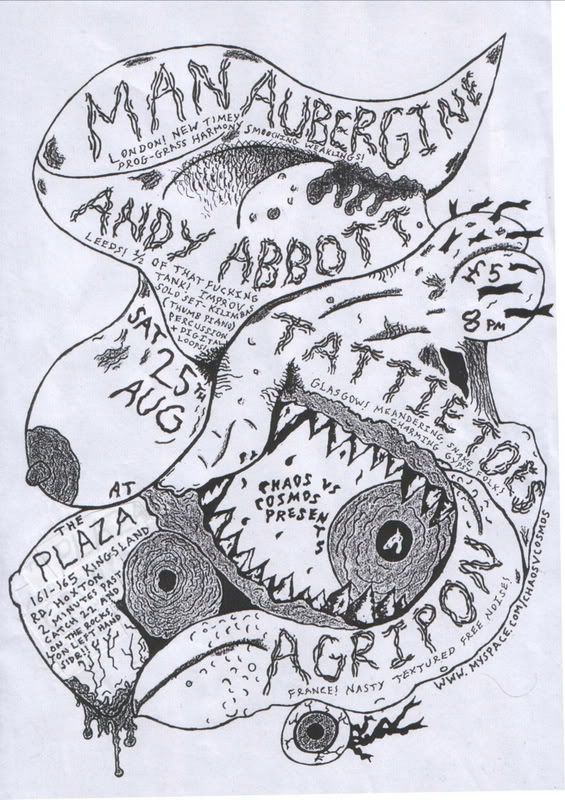 MAN AUBERGINE
LONDON! NEW TIMEY
PROG-GRASS HARMONY SMOOCHING WEAKLINGS!
ANDY ABBOTT.
LEEDS! 1/2 OF THAT FUCKING
TANK! IMPROV &
SOLO SET- KILIMBAS
(THUMB PIANO)
PERCUSSION
+ DIGITAL
LOOPS!
£5
8PM
SAT
25TH
AUG
TATTIE TOES
GLASGOW! MEANDERING, SNAKE, FOLK!
CHARMING GYP
CHAOS VS
COSMOS
PRESENTS
AT
THE
PLAZA
161-165 KINGSLAND
RD, HOXTON
2 MINUTES PAST
CATCH 22 AND
ON THE ROCKS,
ON LEFT HAND
AGRIPON
FRANCE! NASTY TEXTURED FREE NOISE!
WWW.MYSPACE.COM/CHAOSVCOSMOS